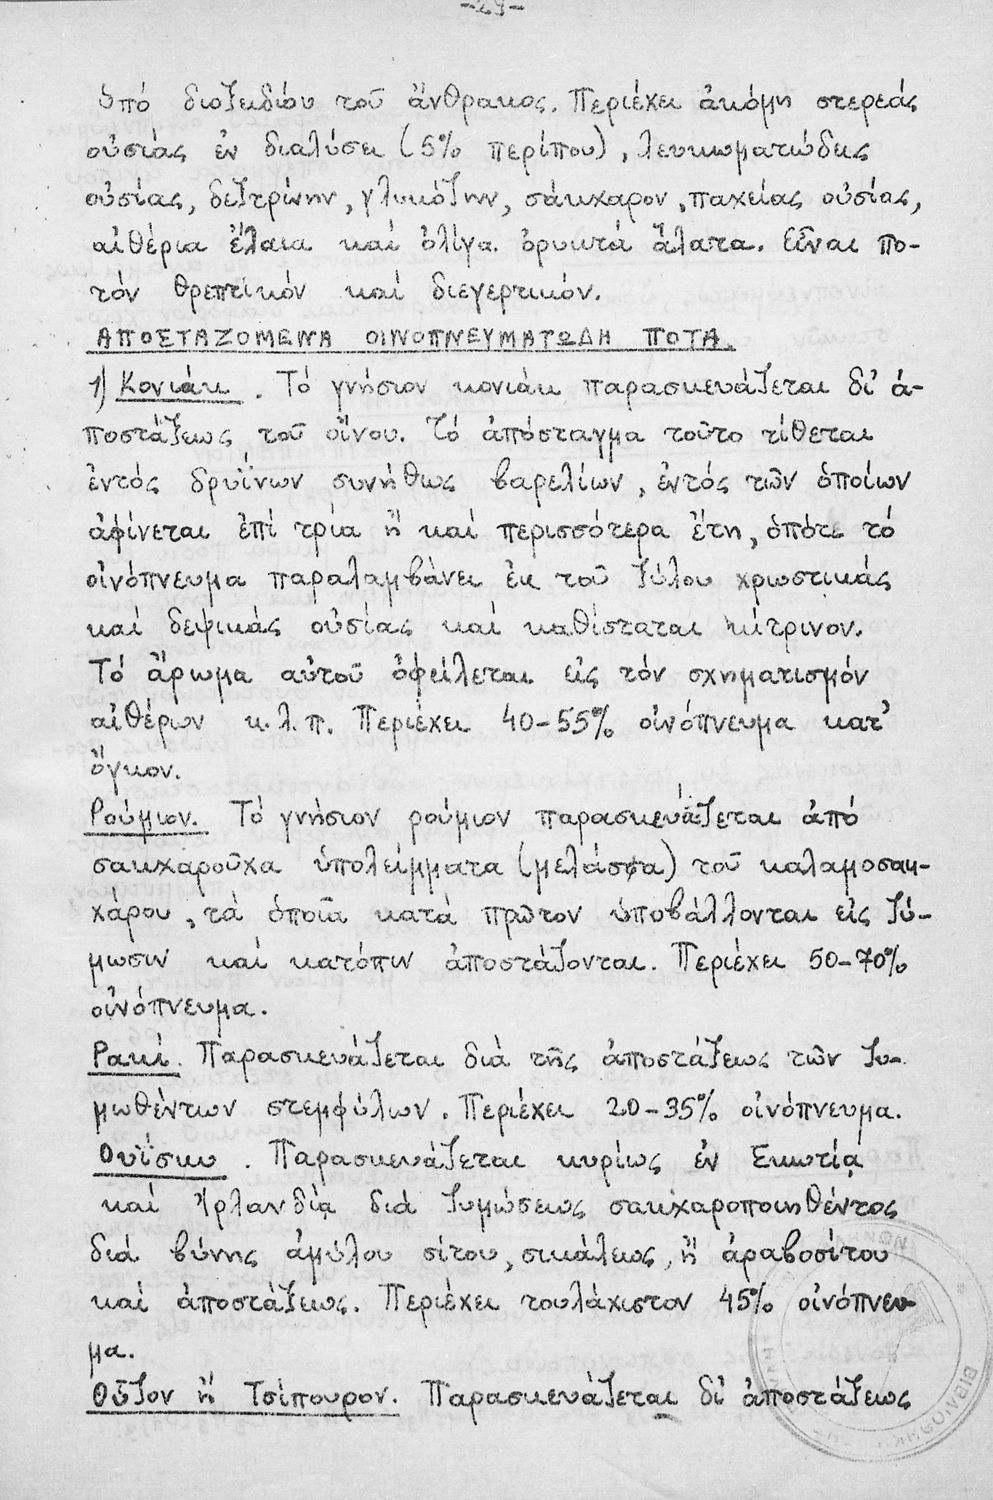 -29-
ὑπό διοξειδίου τοῦ ἄνθρακος. Περιέχει ἀκόμη στερεάς
οὐσίας ἐν διαλύσει (5% περίπου), λευκωματώδεις
οὐσίας, δεξτρίνην, γλυκόζην, σάκχαρον, παχείας οὐσίας,
αἰθέρια ἔλαια καί ὀλίγα ὀρυκτά ἅλατα. Εἶναι πο-
τόν θρεπτικόν καί διεγερτικόν.
ΑΠΟΣΤΑΖΟΜΕΝΑ ΟΙΝΟΠΝΕΥΜΑΤΩΔΗ ΠΟΤΑ.
1) Κονιάκ. Τό γνήσιον κονιάκ παρασκευάζεται δι' ἀ-
ποστάξεως τοῦ οἴνου. Τό ἀπόσταγμα τοῦτο τίθεται
ἐντός δρυΐνων συνήθως βαρελίων, ἐντός τῶν ὁποίων
ἀφίνεται ἐπί τρία ἤ καί περισσότερα ἔτη, ὁπότε τό
οἰνόπνευμα παραλαμβάνει ἐκ τοῦ ξύλου χρωστικάς
καί δεψικάς οὐσίας καί καθίσταται κίτρινον.
Τό ἄρωμα αὐτοῦ ὀφείλεται εἰς τόν σχηματισμόν
αἰθέρων κ.λ.π. Περιέχει 40-55% οἰνόπνευμα κατ'
ὄγκον.
Ρούμιον. Τό γνήσιον ρούμιον παρασκευάζεται ἀπό
σακχαροῦχα ὑπολείμματα (μελάσσα) τοῦ καλαμοσακ-
χάρου, τά ὁποῖα κατά πρῶτον ὑποβάλλονται εἰς ζύ-
μωσιν καί κατόπιν ἀποστάζονται. Περιέχει 50-70%
οἰνόπνευμα.
Ρακί. Παρασκευάζεται διά τῆς ἀποστάξεως τῶν ζυ-
μωθέντων στεμφύλων. Περιέχει 20-35% οἰνόπνευμα.
Οὐΐσκυ. Παρασκευάζεται κυρίως ἐν Σκωτίᾳ
καί Ἰρλανδίᾳ διά ζυμώσεως σακχαροποιηθέντος
διά βύνης ἀμύλου σίτου, σικάλεως, ἤ ἀραβοσίτου
καί ἀποστάξεως. Περιέχει τουλάχιστον 45% οἰνόπνευ-
μα.
Οὖζον ἤ Τσίπουρον. Παρασκευάζεται δι' ἀποστάξεως
ΒΙΒΛΙΟΘΗΚΗ